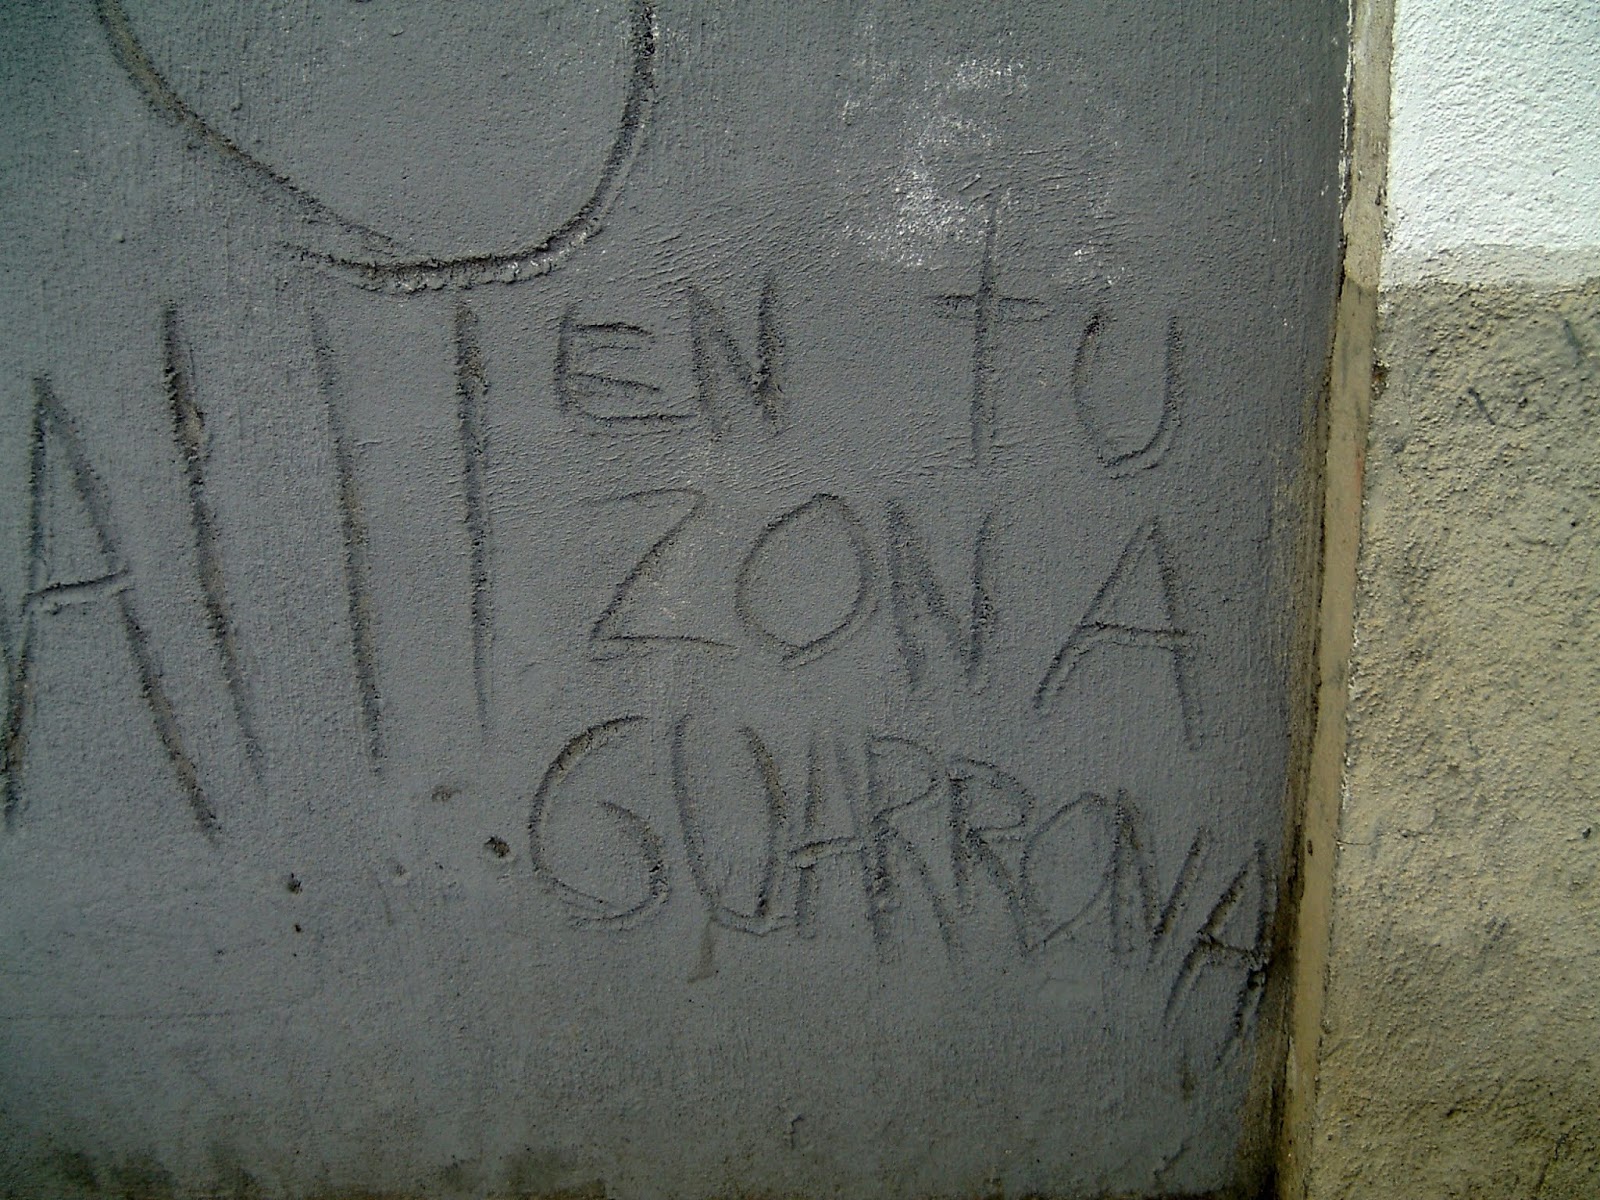 EN TU
ZONA
GUARRONA